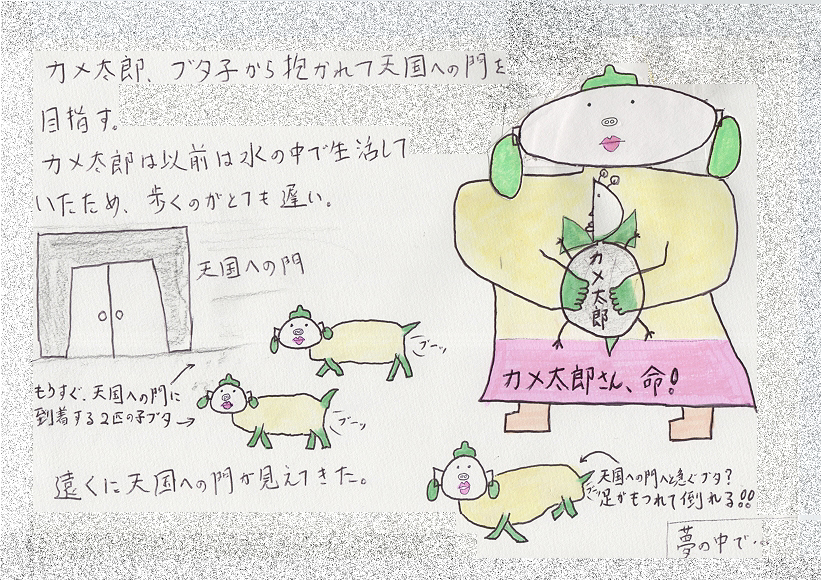 カメ太郎、ブタ子から抱かれて天国への門を
目指す。
カメ太郎は以前は水の中で生活して
いたため、歩くのがとても遅い。
天国への門
カメ太郎
カメ太郎さん、命!
ブーッ
もうすぐ、天国への門に
到着する2匹の子ブタ
ブーッ
遠くに天国への門が見えてきた。
天国への門へと急ぐブタ?
足がもつれて倒れる!!
ブーッ
夢の中で・・・